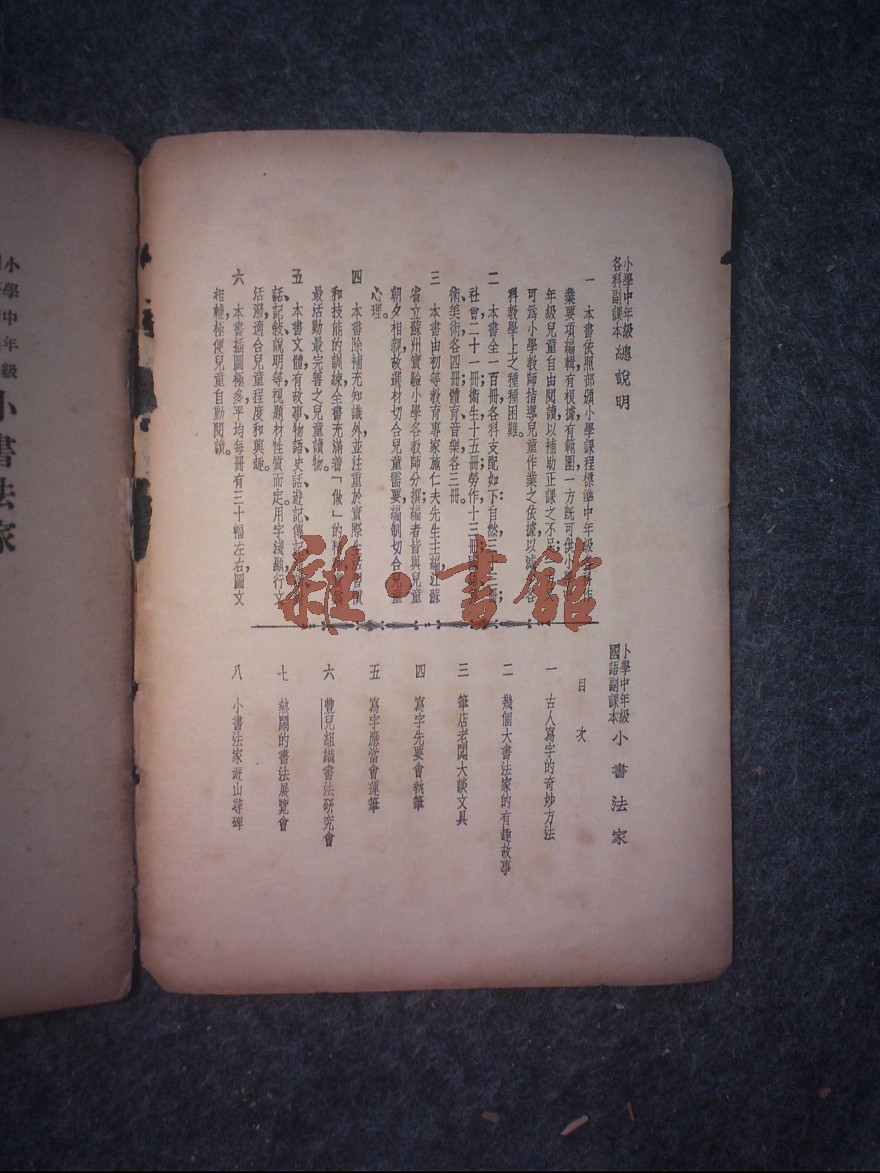 小學中年級
各科副課本
總說明
一 本書依照部頒小學課程標準中年級
業要項編輯有根據有範圍一方既可供小
年級兒童自由閱讀以補助正課之不足
可爲小學教師指導兒童作業之依據以減
科教學上之種種困難。
二 本書全一百冊各科支配如下自然三
社會二十一冊;衛生十五冊勞作十三冊
術美術各四冊體育音樂各三冊。
三 本書由初等教育專家施仁夫先生主編江蘇
省立蘇州實驗小學各教師分撰編者皆與兒童
朝夕相親故選材切合兒童需要編制切合兒童
心理。
四 本書除補充知識外並注重於實際生活習慣
和技能的訓練全書充滿着「做」的
最活動最完善之兒童讀物。
五 本書文體有故事、物語、史話、遊記、傳記
話、記敍、說明等視題材性質而定。用字淺顯行文
活潑,適合兒童程度和興趣。
六 本書插圖極多平均每冊有三十幅左右圖文
相輔,極便兒童自動閱讀。
雜·書館
小學中年級
國語副課本
小書法家
目次
一 古人寫字的奇妙方法
二 幾個大書法家的有趣故事
三 筆店老闆大談文具
四 寫字先要會執筆
五 寫字應當會運筆
六 豐兒組織書法研究會
七 熱鬧的書法展覽會
八 小書法家遊山尋碑
小學中年級
小書法家